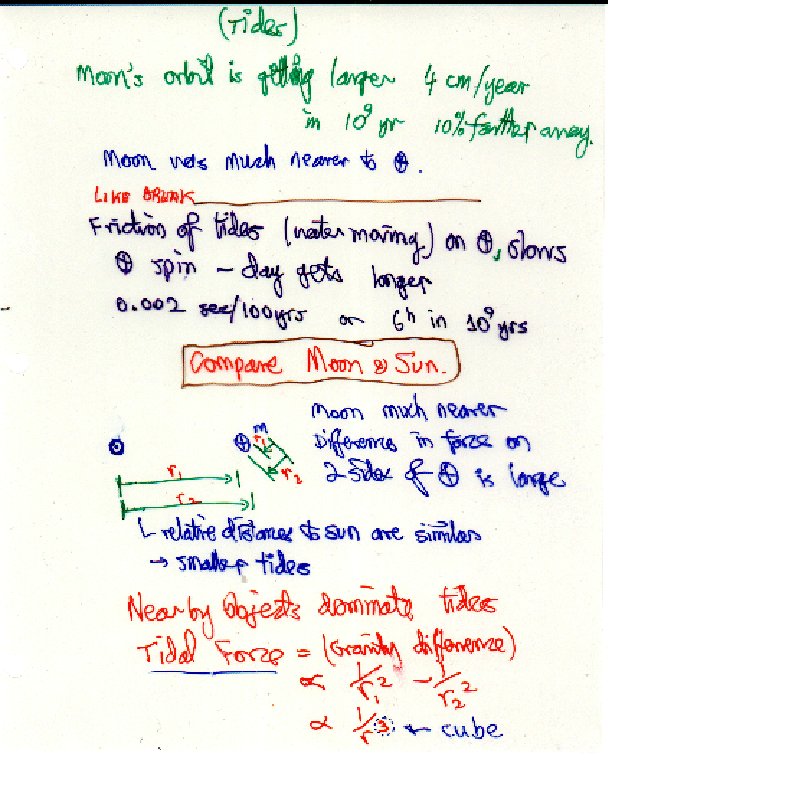 (Tides)
Moon's orbit is getting larger 4 cm/year
in 10⁹ yr 10% farther away.
Moon was much nearer to ⊕.
LIKE BREAK
Friction of tides (water moving) on ⊕, slows
⊕ spin - day gets longer
0.002 sec/100yrs or 6ʰ in 10⁹ yrs
Compare Moon & Sun.
Moon much nearer
Difference in force on
2 sides of ⊕ is large
☉ ⊕ m
r₁ r₂
r₁
r₂
relative distances to sun are similar
→ smaller tides
Nearby Objects dominate tides
Tidal Force = (Gravity difference)
∝ 1/r₁² - 1/r₂²
∝ 1/r³ ← cube